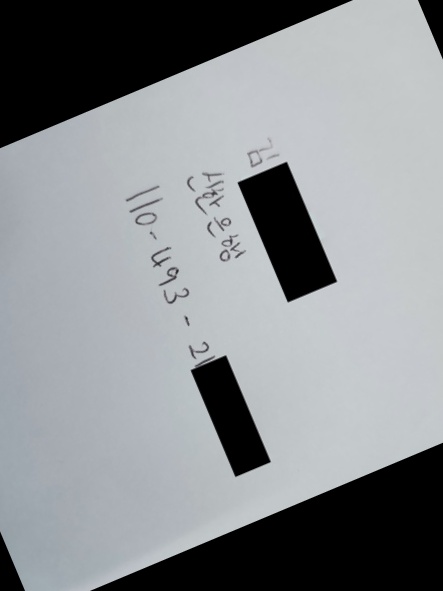 김
신한은행
110-493-21